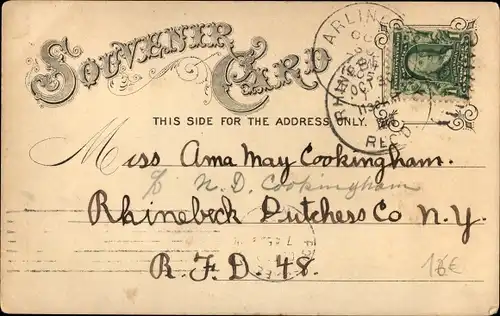 SOUVENIR CARD
ARLIN
RHINEBECK
REC'D
THIS SIDE FOR THE ADDRESS ONLY.
Miss Ama May Cookingham.
% N. D. Cookingham
Rhinebeck Dutchess Co N.Y.
R. F. D. 48.